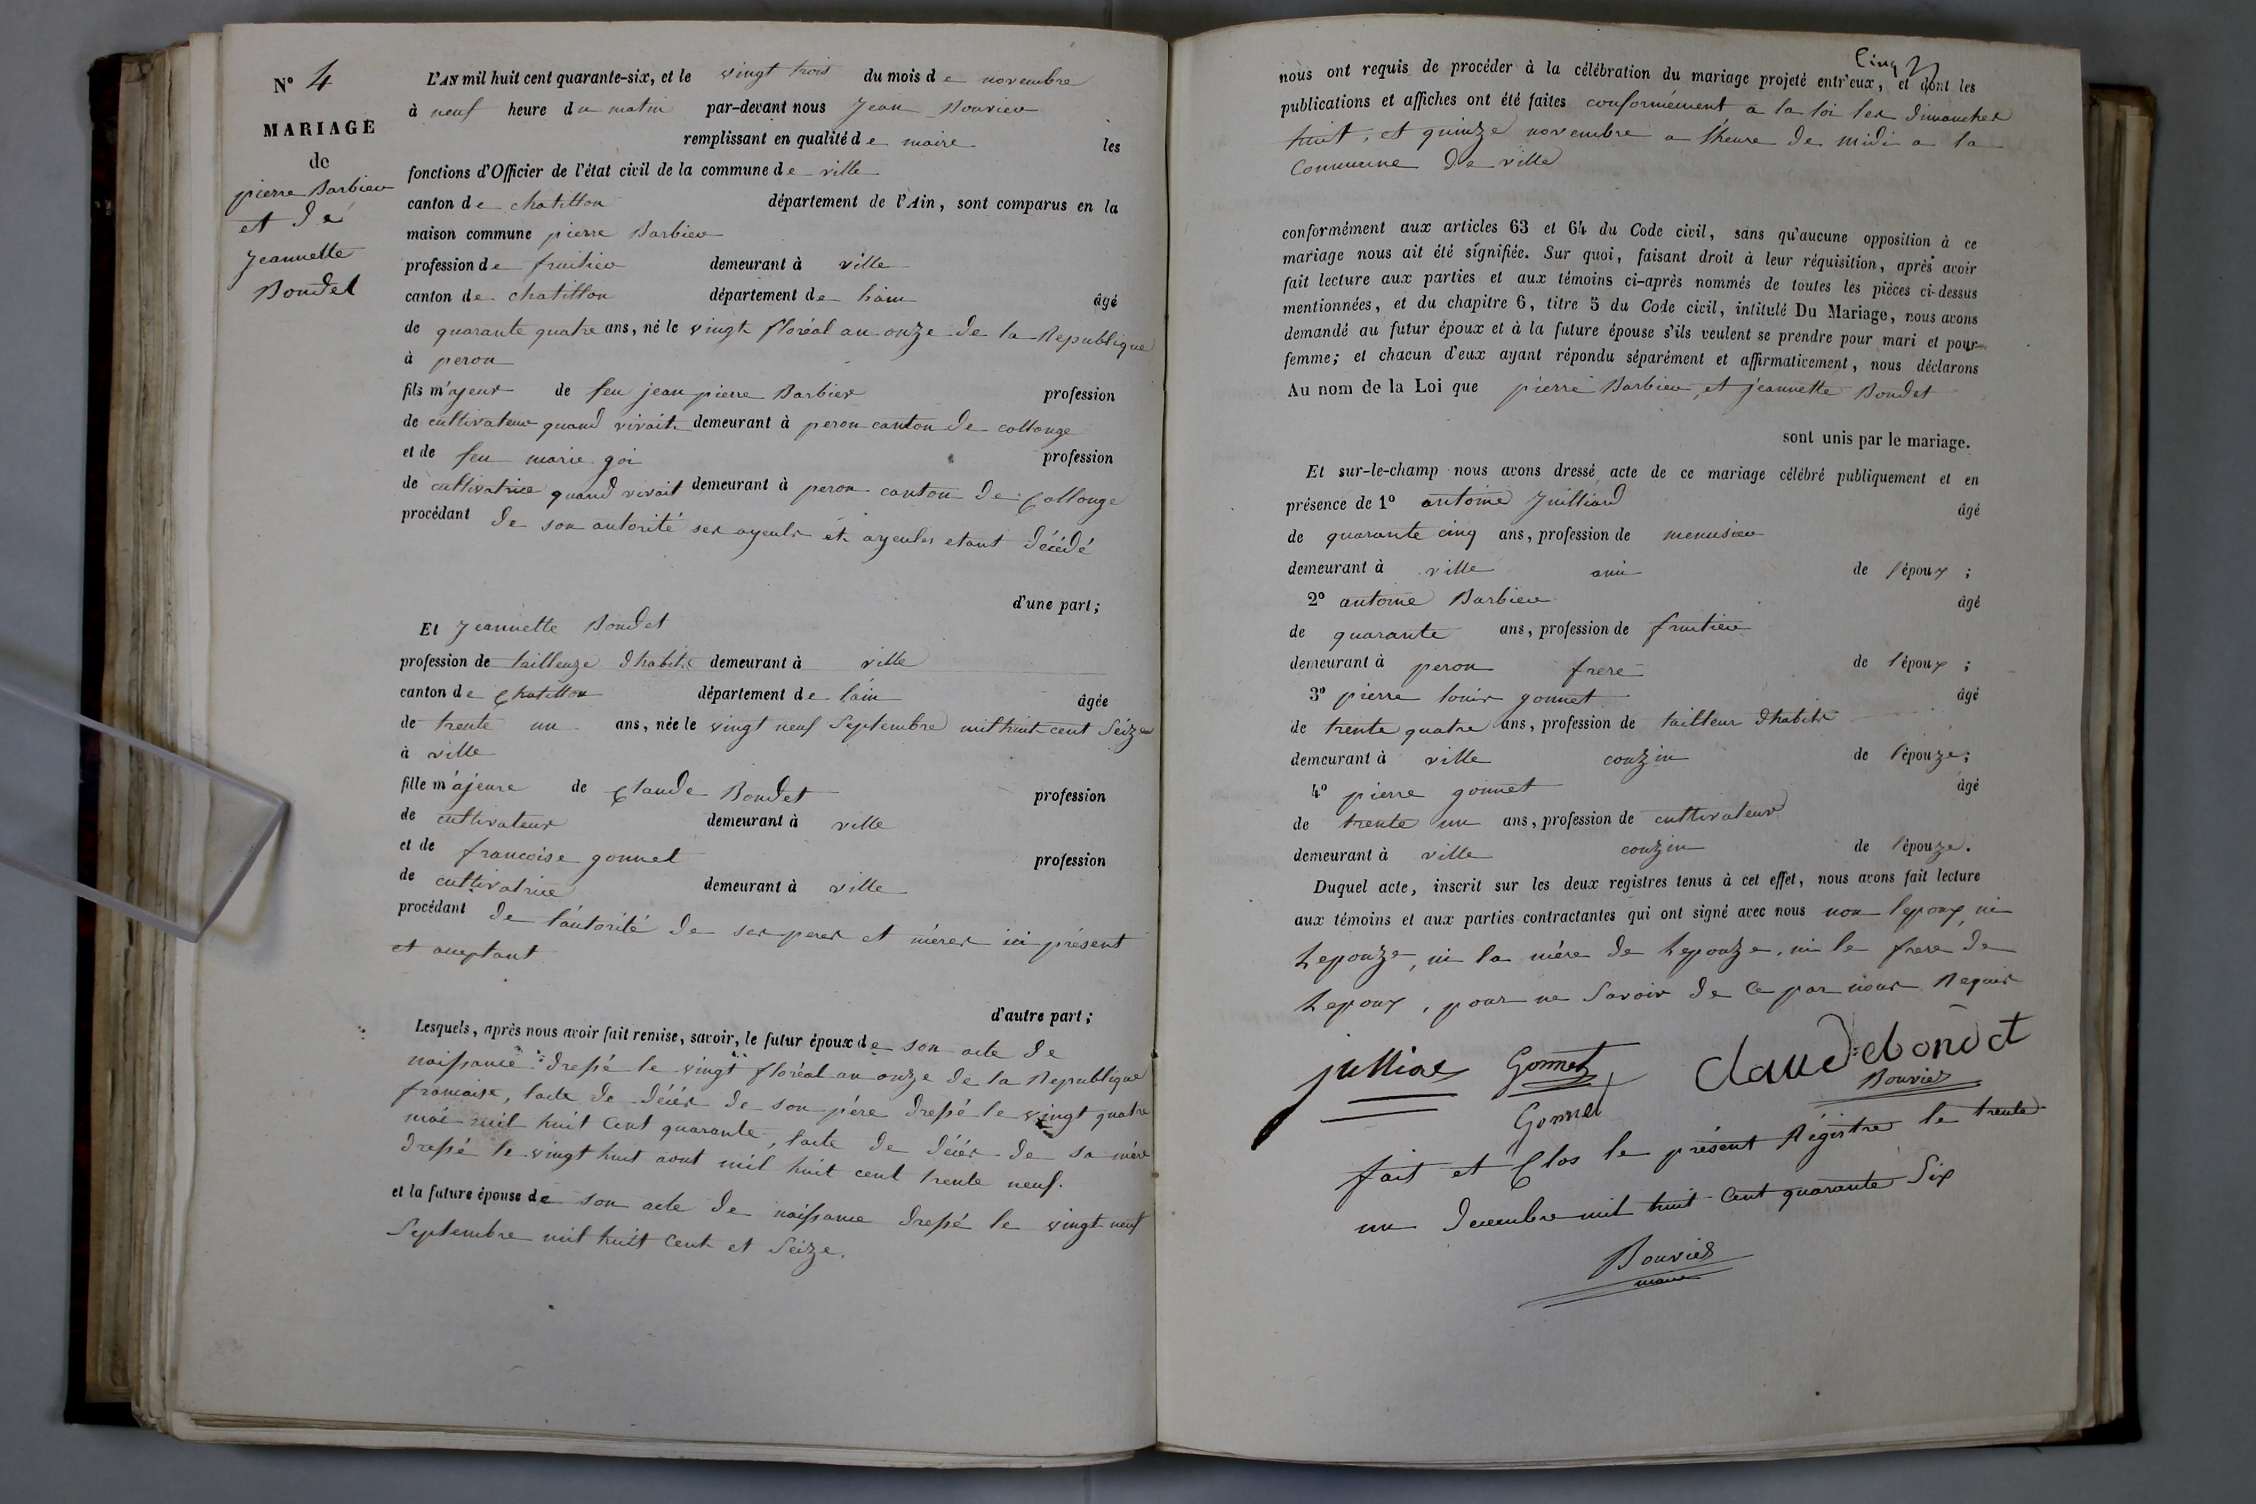 N° 4
MARIAGE
de
pierre Barbier
et de
Jeannette
Bondet
L'AN mil huit cent quarante-six, et le vingt trois du mois de novembre
à neuf heure du matin par-devant nous Jean Bouvier
remplissant en qualité de maire les
fonctions d'Officier de l'état civil de la commune de ville
canton de chatillon département de l'Ain, sont comparus en la
maison commune pierre Barbier
profession de fruitier demeurant à ville
canton de chatillon département de lain âgé
de quarante quatre ans, né le vingt floréal an onze de la Republique
à peron
fils majeur de feu jean pierre Barbier profession
de cultivateur quand vivait demeurant à peron canton de collonge
et de feu marie goi profession
de cultivatrice quand vivait demeurant à peron canton de Collonge
procédant de son autorité ses ayeuls et ayeules etant décédé
d'une part;
Et Jeannette Bondet
profession de tailleuze dhabits demeurant à ville
canton de Chatillon département de lain âgée
de trente un ans, née le vingt neuf Septembre mil huit cent Seize
à ville
fille majeure de Claude Bondet profession
de cultivateur demeurant à ville
et de francoise gonnet profession
de cultivatrice demeurant à ville
procédant de l'autorité de ses peres et méres ici présent
et aceptant
d'autre part;
Lesquels, après nous avoir fait remise, savoir, le futur époux de son acte de
naissance dressé le vingt floréal an onze de la Republique
francaise, lacte de décés de son pére dressé le vingt quatre
mai mil huit Cent quarante, lacte de décés de sa mére
dressé le vingt huit aout mil huit cent trente neuf.
et la future épouse de son acte de naissance dressé le vingt neuf
Septembre mil huit Cent et Seize.
Cinq
nous ont requis de procéder à la célébration du mariage projeté entr'eux, et dont les
publications et affiches ont été faites conformément a la loi les dimanches
huit, et quinze novembre a lheure de midi a la
Commune de ville
conformément aux articles 63 et 64 du Code civil, sans qu'aucune opposition à ce
mariage nous ait été signifiée. Sur quoi, faisant droit à leur réquisition, après avoir
fait lecture aux parties et aux témoins ci-après nommés de toutes les pièces ci-dessus
mentionnées, et du chapitre 6, titre 5 du Code civil, intitulé Du Mariage, nous avons
demandé au futur époux et à la future épouse s'ils veulent se prendre pour mari et pour
femme; et chacun d'eux ayant répondu séparément et affirmativement, nous déclarons
Au nom de la Loi que pierre Barbier, et jeannette Bondet
sont unis par le mariage.
Et sur-le-champ nous avons dressé acte de ce mariage célébré publiquement et en
présence de 1° antoine Juilliard âgé
de quarante cinq ans, profession de menusier
demeurant à ville ami de lépoux ;
2° antoine Barbier âgé
de quarante ans, profession de fruitier
demeurant à peron frere de lépoux ;
3° pierre louis gonnet âgé
de trente quatre ans, profession de tailleur dhabits
demeurant à ville couzin de lépouze;
4° pierre gonnet âgé
de trente un ans, profession de cultivateur
demeurant à ville couzin de lépouze.
Duquel acte, inscrit sur les deux registres tenus à cet effet, nous avons fait lecture
aux témoins et aux parties contractantes qui ont signé avec nous non lepoux, ni
Lepouze, ni la mére de Lepouze, ni le frere de
Lepoux, pour ne Savoir de Ce par nous Requis
Gonnet claude bondet
Bouvier
Gonnet
fait et Clos le présent Régistre le trente
un decembre mil huit Cent quarante Six
Bouvier
maire